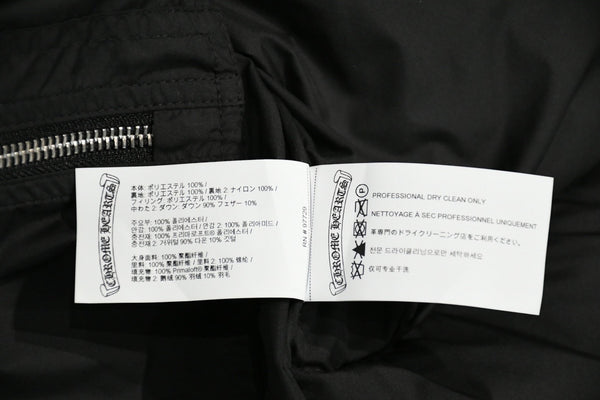 CHROME HEARTS
本体: ポリエステル 100% /
裏地: ポリエステル 100% / 裏地 2: ナイロン 100% /
フィリング: ポリエステル 100% /
中わた 2: ダウン: ダウン 90% フェザー 10%
주요부: 100% 폴리에스터 /
안감: 100% 폴리에스터 / 안감 2: 100% 폴리아미드 /
충전재: 100% 프리마로프트® 폴리에스터 /
충전재 2: 거위털 90% 다운 10% 깃털
大身面料: 100% 聚酯纤维 /
里料: 100% 聚酯纤维 / 里料 2: 100% 锦纶 /
填充物: 100% Primaloft® 聚酯纤维 /
填充物 2: 鹅绒 90% 羽绒 10% 羽毛
RN # 97729
CHROME HEARTS
PROFESSIONAL DRY CLEAN ONLY
NETTOYAGE À SEC PROFESSIONNEL UNIQUEMENT
革専門のドライクリーニング店をご利用ください。
전문 드라이클리닝으로만 세탁하세요
仅可专业干洗